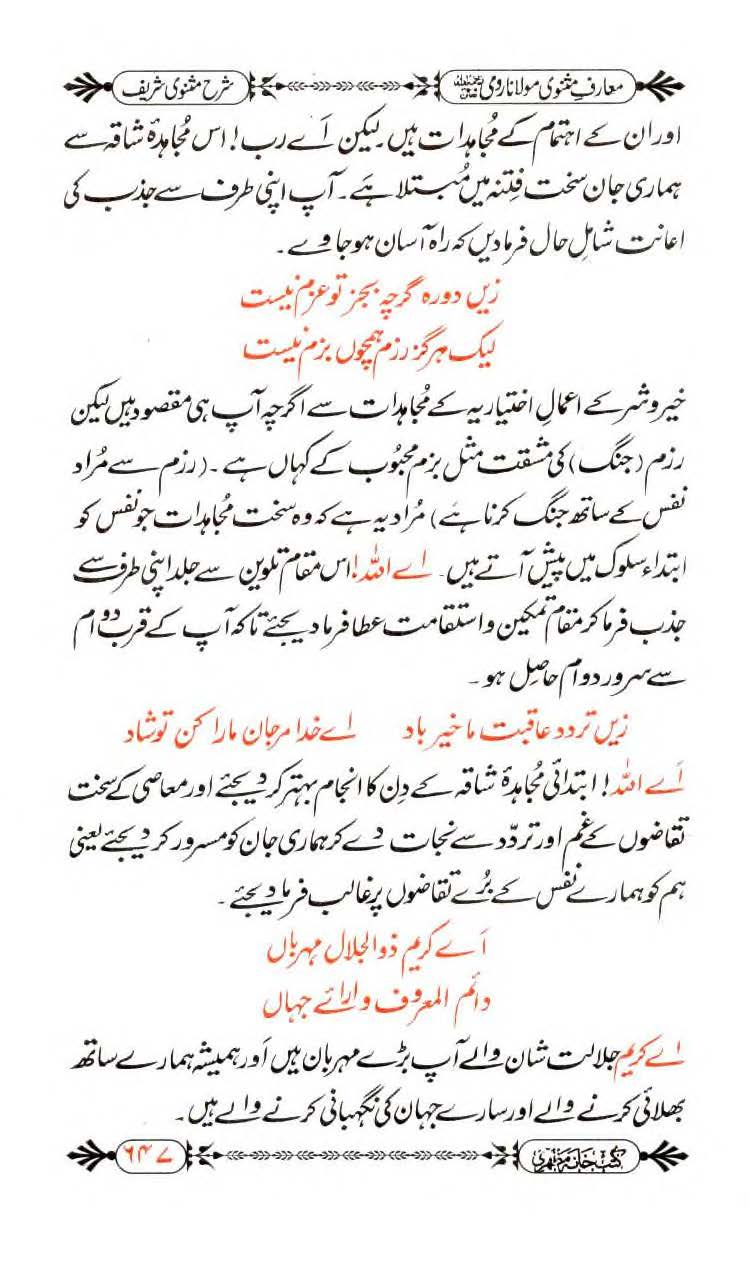 معارفِ مثنوی مولانا رومیؒ
شرح مثنوی شریف
اور ان کے اہتمام کے مُجاہدات ہیں۔ لیکن اَے رب! اس مُجاہدۂ شاقہ سے
ہماری جان سخت فِتنہ میں مُبتلا ہَے۔ آپ اپنی طرف سے جذب کی
اعانت شاملِ حال فرمادیں کہ راہ آسان ہوجاوے۔
زیں دورہ گرچہ بجز تو عزم نیست
لیک ہرگز رزم ہمچوں بزم نیست
خیر و شر کے اعمالِ اختیاریہ کے مُجاہدات سے اگرچہ آپ ہی مقصود ہیں لیکن
رزم (جنگ) کی مشقت مثل بزم محبوب کے کہاں ہے۔ (رزم سے مُراد
نفس کے ساتھ جنگ کرنا ہَے) مُراد یہ ہے کہ وہ سخت مُجاہدات جو نفس کو
ابتداء سلوک میں پیش آتے ہیں۔ اے اللہ! اس مقام تلوین سے جلد اپنی طرف سے
جذب فرماکر مقام تمکین و استقامت عطا فرما دیجئے تاکہ آپ کے قرب دوام
سے سرور دوام حاصِل ہو۔
زیں تردد عاقبت ما خیر باد اے خدا مرجان مارا کن تو شاد
اَے اللہ! ابتدائی مُجاہدۂ شاقہ کے دِن کا انجام بہتر کر دیجئے اور معاصی کے سخت
تقاضوں کے غم اور تردّد سے نجات دے کر ہماری جان کو مسرور کر دیجئے یعنی
ہم کو ہمارے نفس کے بُرے تقاضوں پر غالب فرما دیجئے۔
اَے کریم ذوالجلال مہرباں
دائم المعروف وارائے جہاں
اے کریم جلالت شان والے آپ بڑے مہربان ہیں اَور ہمیشہ ہمارے ساتھ
بھلائی کرنے والے اور سارے جہان کی نگہبانی کرنے والے ہیں۔
کتب خانہ مظہری
۶۴۷